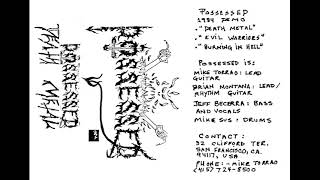 DEATH METAL
POSSESSED
POSSESSED
POSSESSED
1984 DEMO
- "DEATH METAL"
- "EVIL WARRIORS"
- "BURNING IN HELL"
POSSESSED IS:
MIKE TORRAO: LEAD
GUITAR
BRIAN MONTANA: LEAD/
RHYTHM GUITAR
JEFF BECERRA: BASS
AND VOCALS
MIKE SUS: DRUMS
CONTACT:
32 CLIFFORD TER.
SAN FRANCISCO, CA.
94117, USA
PHONE: - MIKE TORRAO
(415) 724-8500